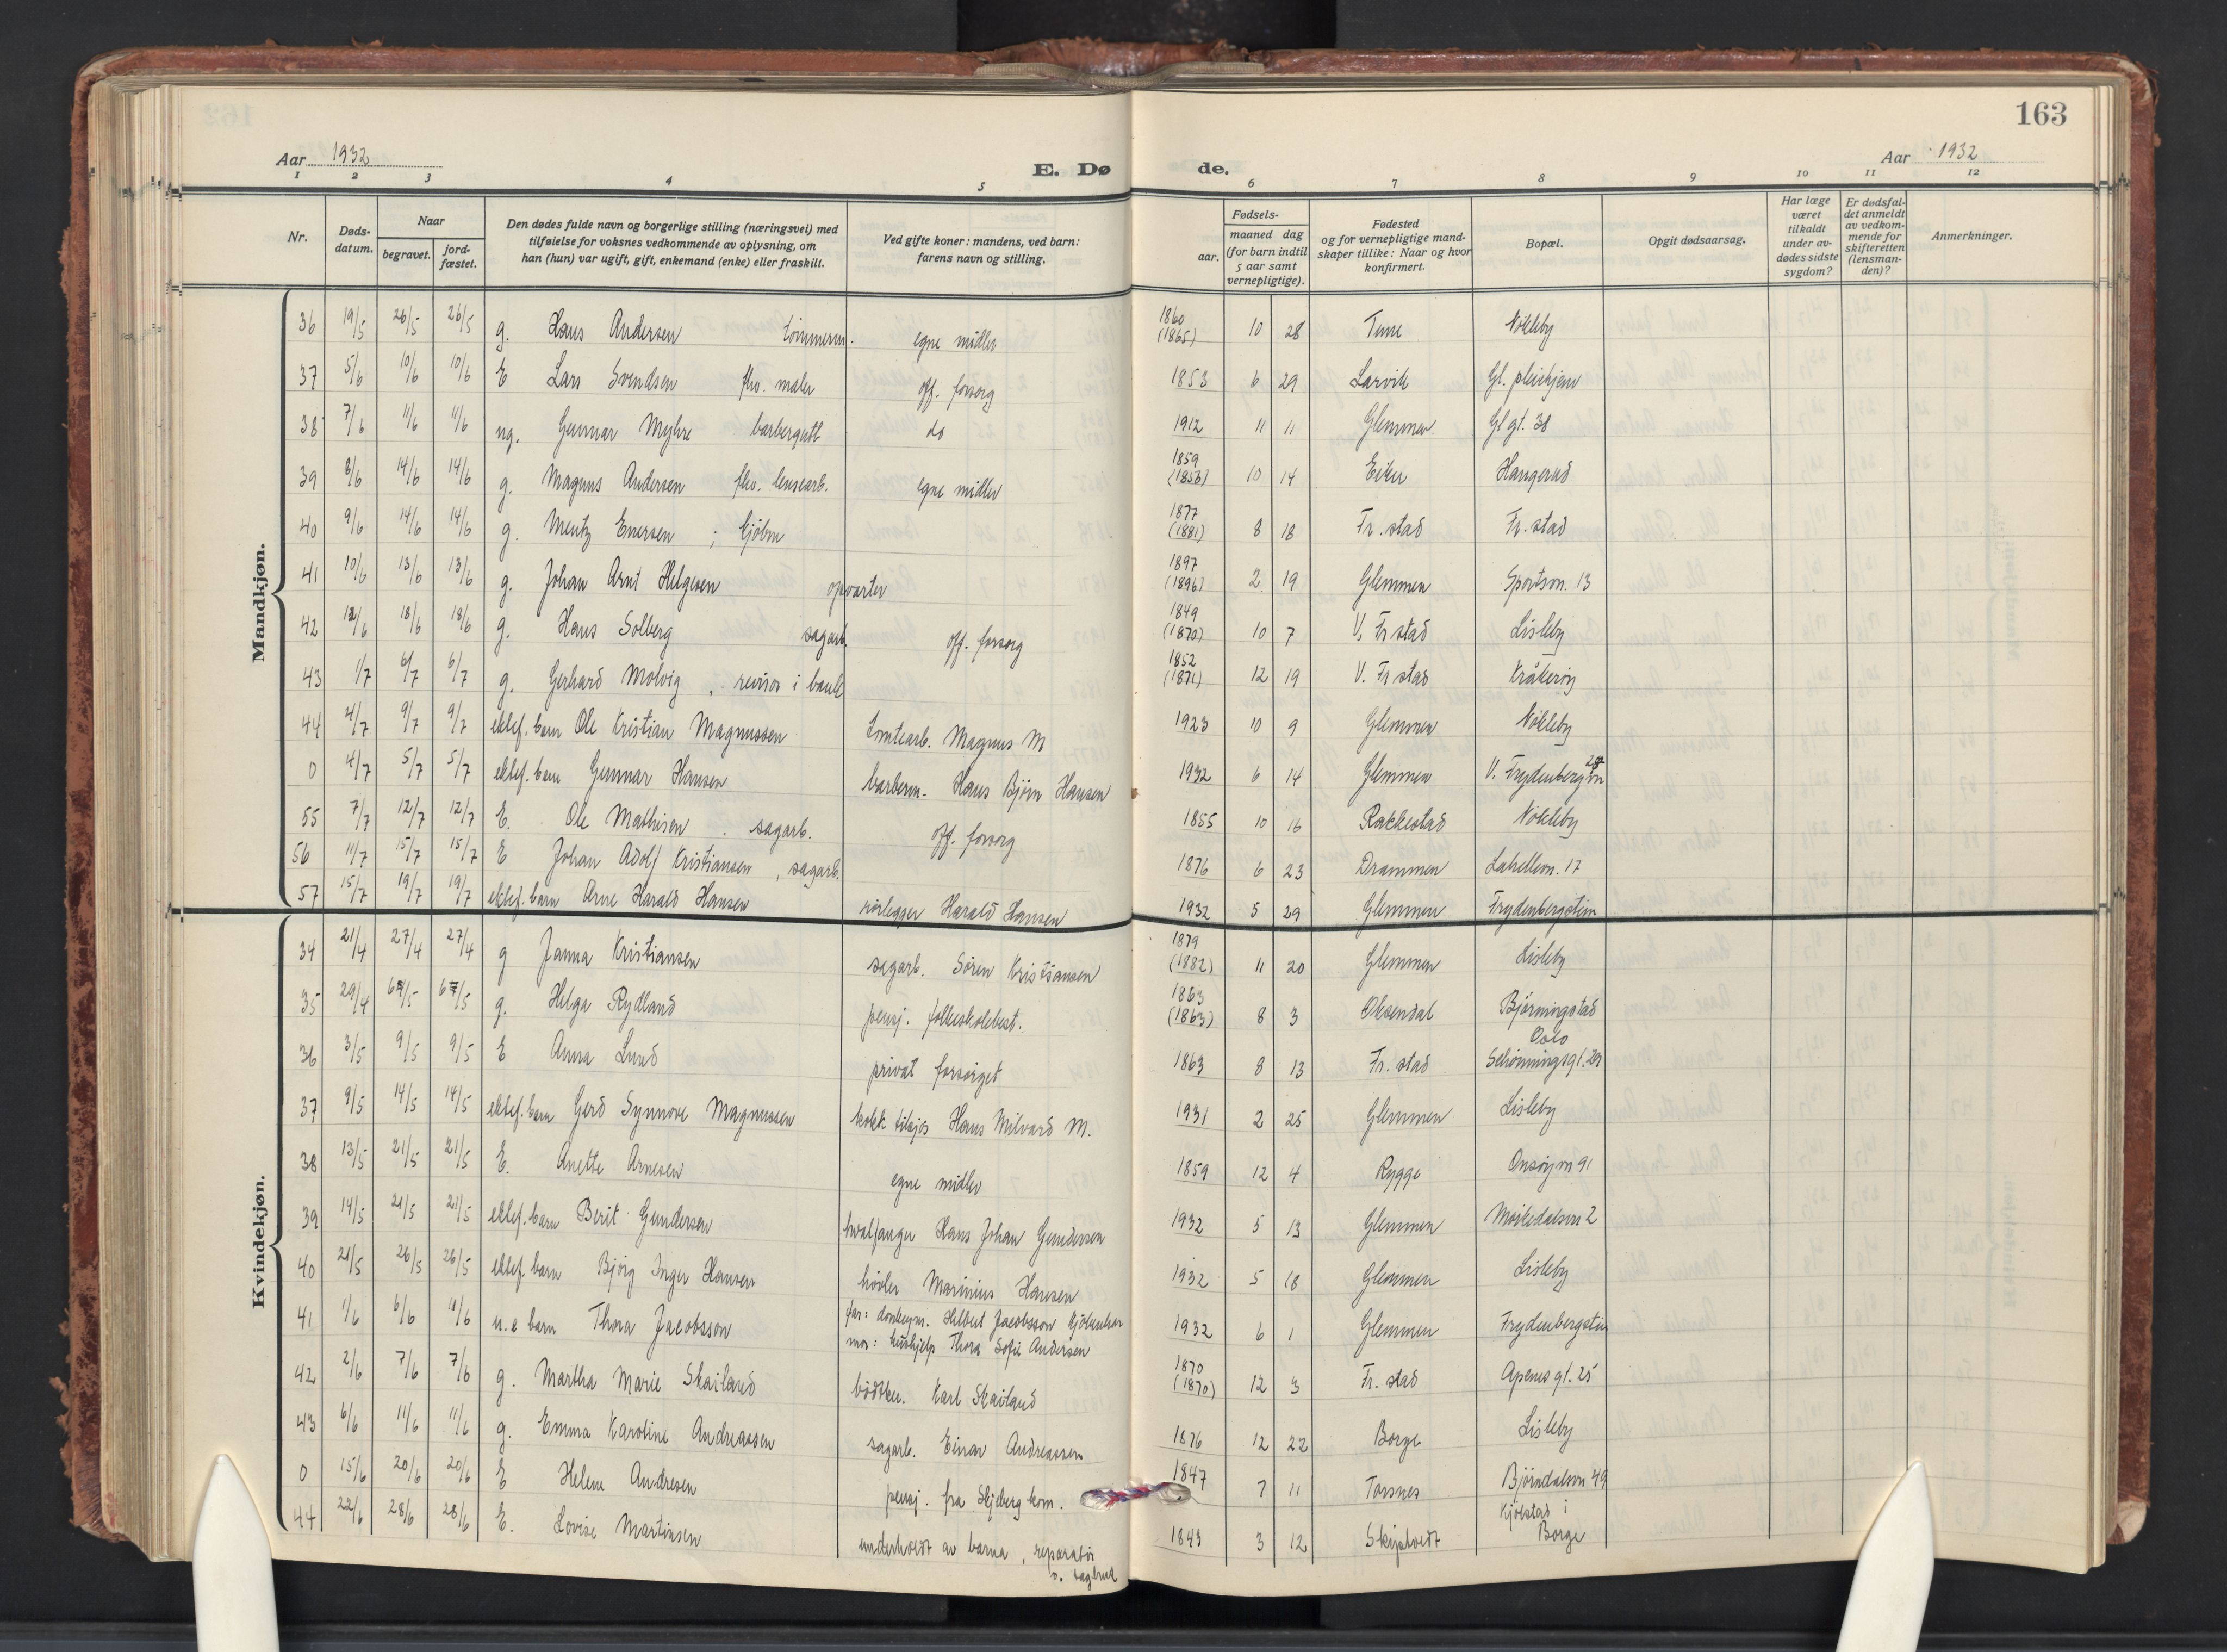 163
Aar 1932
E. Dø de.
Aar 1932
1 2 3 4 5 6 7 8 9 10 11 12
Nr.
Døds-datum.
Naar
begravet.
jord-fæstet.
Den dødes fulde navn og borgerlige stilling (næringsvei) med
tilføielse for voksnes vedkommende av oplysning, om
han (hun) var ugift, gift, enkemand (enke) eller fraskilt.
Ved gifte koner: mandens, ved barn:
farens navn og stilling.
Fødsels-
aar.
maaned dag
(for barn indtil
5 aar samt
vernepligtige).
Fødested
og for vernepligtige mand-
skaper tillike: Naar og hvor
konfirmert.
Bopæl.
Opgit dødsaarsag.
Har læge
været
tilkaldt
under av-
dødes sidste
sygdom?
Er dødsfal-
det anmeldt
av vedkom-
mende for
skifteretten
(lensman-
den)?
Anmerkninger.
Mandkjøn.
36 19/5 26/5 26/5 g. Hans Andersen tömmerm. egne midler 1860 (1865) 10 28 Tune Nökleby
37 5/6 10/6 10/6 E Lars Svendsen fhv. maler off. forsorg 1853 6 29 Larvik Gl. pleiehjem
38 7/6 11/6 11/6 ug. Gunnar Myhre barbergutt do 1912 11 11 Glemmen Gl gt. 38
39 8/6 14/6 14/6 g. Magnus Andersen fhv. lensearb. egne midler 1859 (1853) 10 14 Eiker Haugerud
40 9/6 14/6 14/6 g. Mentz Eversen ; kjöbm 1877 (1881) 8 18 Fr. stad Fr. stad
41 10/6 13/6 13/6 g. Johan Arnt Helgesen opvarter 1897 (1896) 2 19 Glemmen Sportsvn. 13
42 12/6 18/6 18/6 g. Hans Solberg sagarb. off. forsorg 1849 (1870) 10 7 V. Fr stad Lisleby
43 1/7 6/7 6/7 g. Gerhard Molvig , revisor i bank 1852 (1871) 12 19 V. Fr stad Kråkeröy
44 4/7 9/7 9/7 ektef. barn Ole Kristian Magnussen tomtearb. Magnus M 1923 10 9 Glemmen Nökleby
0 4/7 5/7 5/7 ektef. barn Gunnar Hansen barberm. Hans Björn Hansen 1932 6 14 Glemmen V. Frydenberg
55 7/7 12/7 12/7 E. Ole Mathisen . sagarb. off. forsorg 1855 10 16 Rakkestad Nökleby
56 11/7 15/7 15/7 E Johan Adolf Kristiansen , sagarb. 1876 6 23 Drammen Lahellevn. 17
57 15/7 19/7 19/7 ektef. barn Arne Harald Hansen rörlegger Harald Hansen 1932 5 29 Glemmen Frydenbergstien
Kvindekjøn.
34 21/4 27/4 27/4 g Janna Kristiansen sagarb. Sören Kristiansen 1879 (1882) 11 20 Glemmen Lisleby
35 29/4 /5 /5 g. Helga Rydland pensj. folkeskolebest. 1863 (1863) 8 3 Oksendal Bjørningstad
36 3/5 9/5 9/5 E Anna Lund privat forsörget 1863 8 13 Fr. stad Oslo Schönningsgt. 29
37 9/5 14/5 14/5 ektef. barn Gerd Synnove Magnussen kokk tilsjös Hans Milvard M. 1931 2 25 Glemmen Lisleby
38 13/5 21/5 21/5 E. Anette Arnesen egne midler 1859 12 4 Rygge Onsöyvn 91
39 14/5 21/5 21/5 ektef. barn Berit Gundersen hvalfanger Hans Johan Gundersen 1932 5 13 Glemmen 2
40 21/5 26/5 26/5 ektef. barn Björg Inger Hansen hövler Marinius Hansen 1932 5 18 Glemmen Lisleby
41 1/6 6/6 /6 u. e barn Thora Jacobsson far: donkeym. Helbert Jacobsson Kjöbenhavn
mor: hushjelp Thora Sofie Andersen 1932 6 1 Glemmen Frydenbergstien
42 2/6 7/6 7/6 g. Martha Marie Skailand bödtker. Karl Skailand 1870 (1870) 12 3 Fr. stad Apenesgt. 25
43 6/6 11/6 11/6 g. Emma Karoline Andreassen sagarb. Einar Andreassen 1876 12 22 Borge Lisleby
0 15/6 20/6 20/6 E Helene Andresen pensj. fra Skjeberg kom. 1847 7 11 Torsnes Bjørndalsvn 49
44 22/6 28/6 28/6 E. Lovise Martinsen underholdt av barna , reparatör
v. sagbruk 1843 3 12 Skiptvedt Kjölstad i Borge